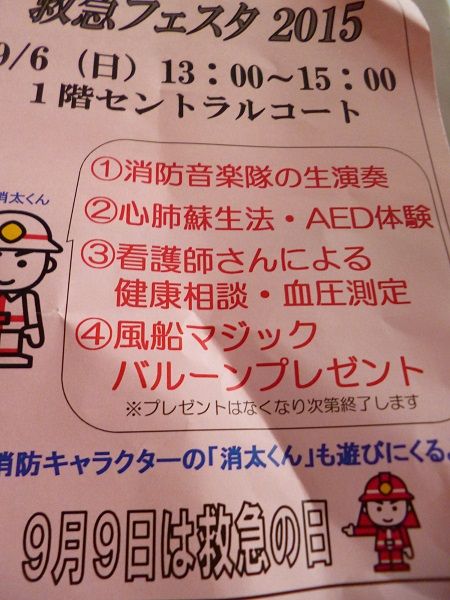 救急フェスタ 2015
9/6（日）13：00～15：00
1階セントラルコート
消太くん
①消防音楽隊の生演奏
②心肺蘇生法・AED体験
③看護師さんによる
健康相談・血圧測定
④風船マジック
バルーンプレゼント
※プレゼントはなくなり次第終了します
消防キャラクターの「消太くん」も遊びにくるよ
9月9日は救急の日